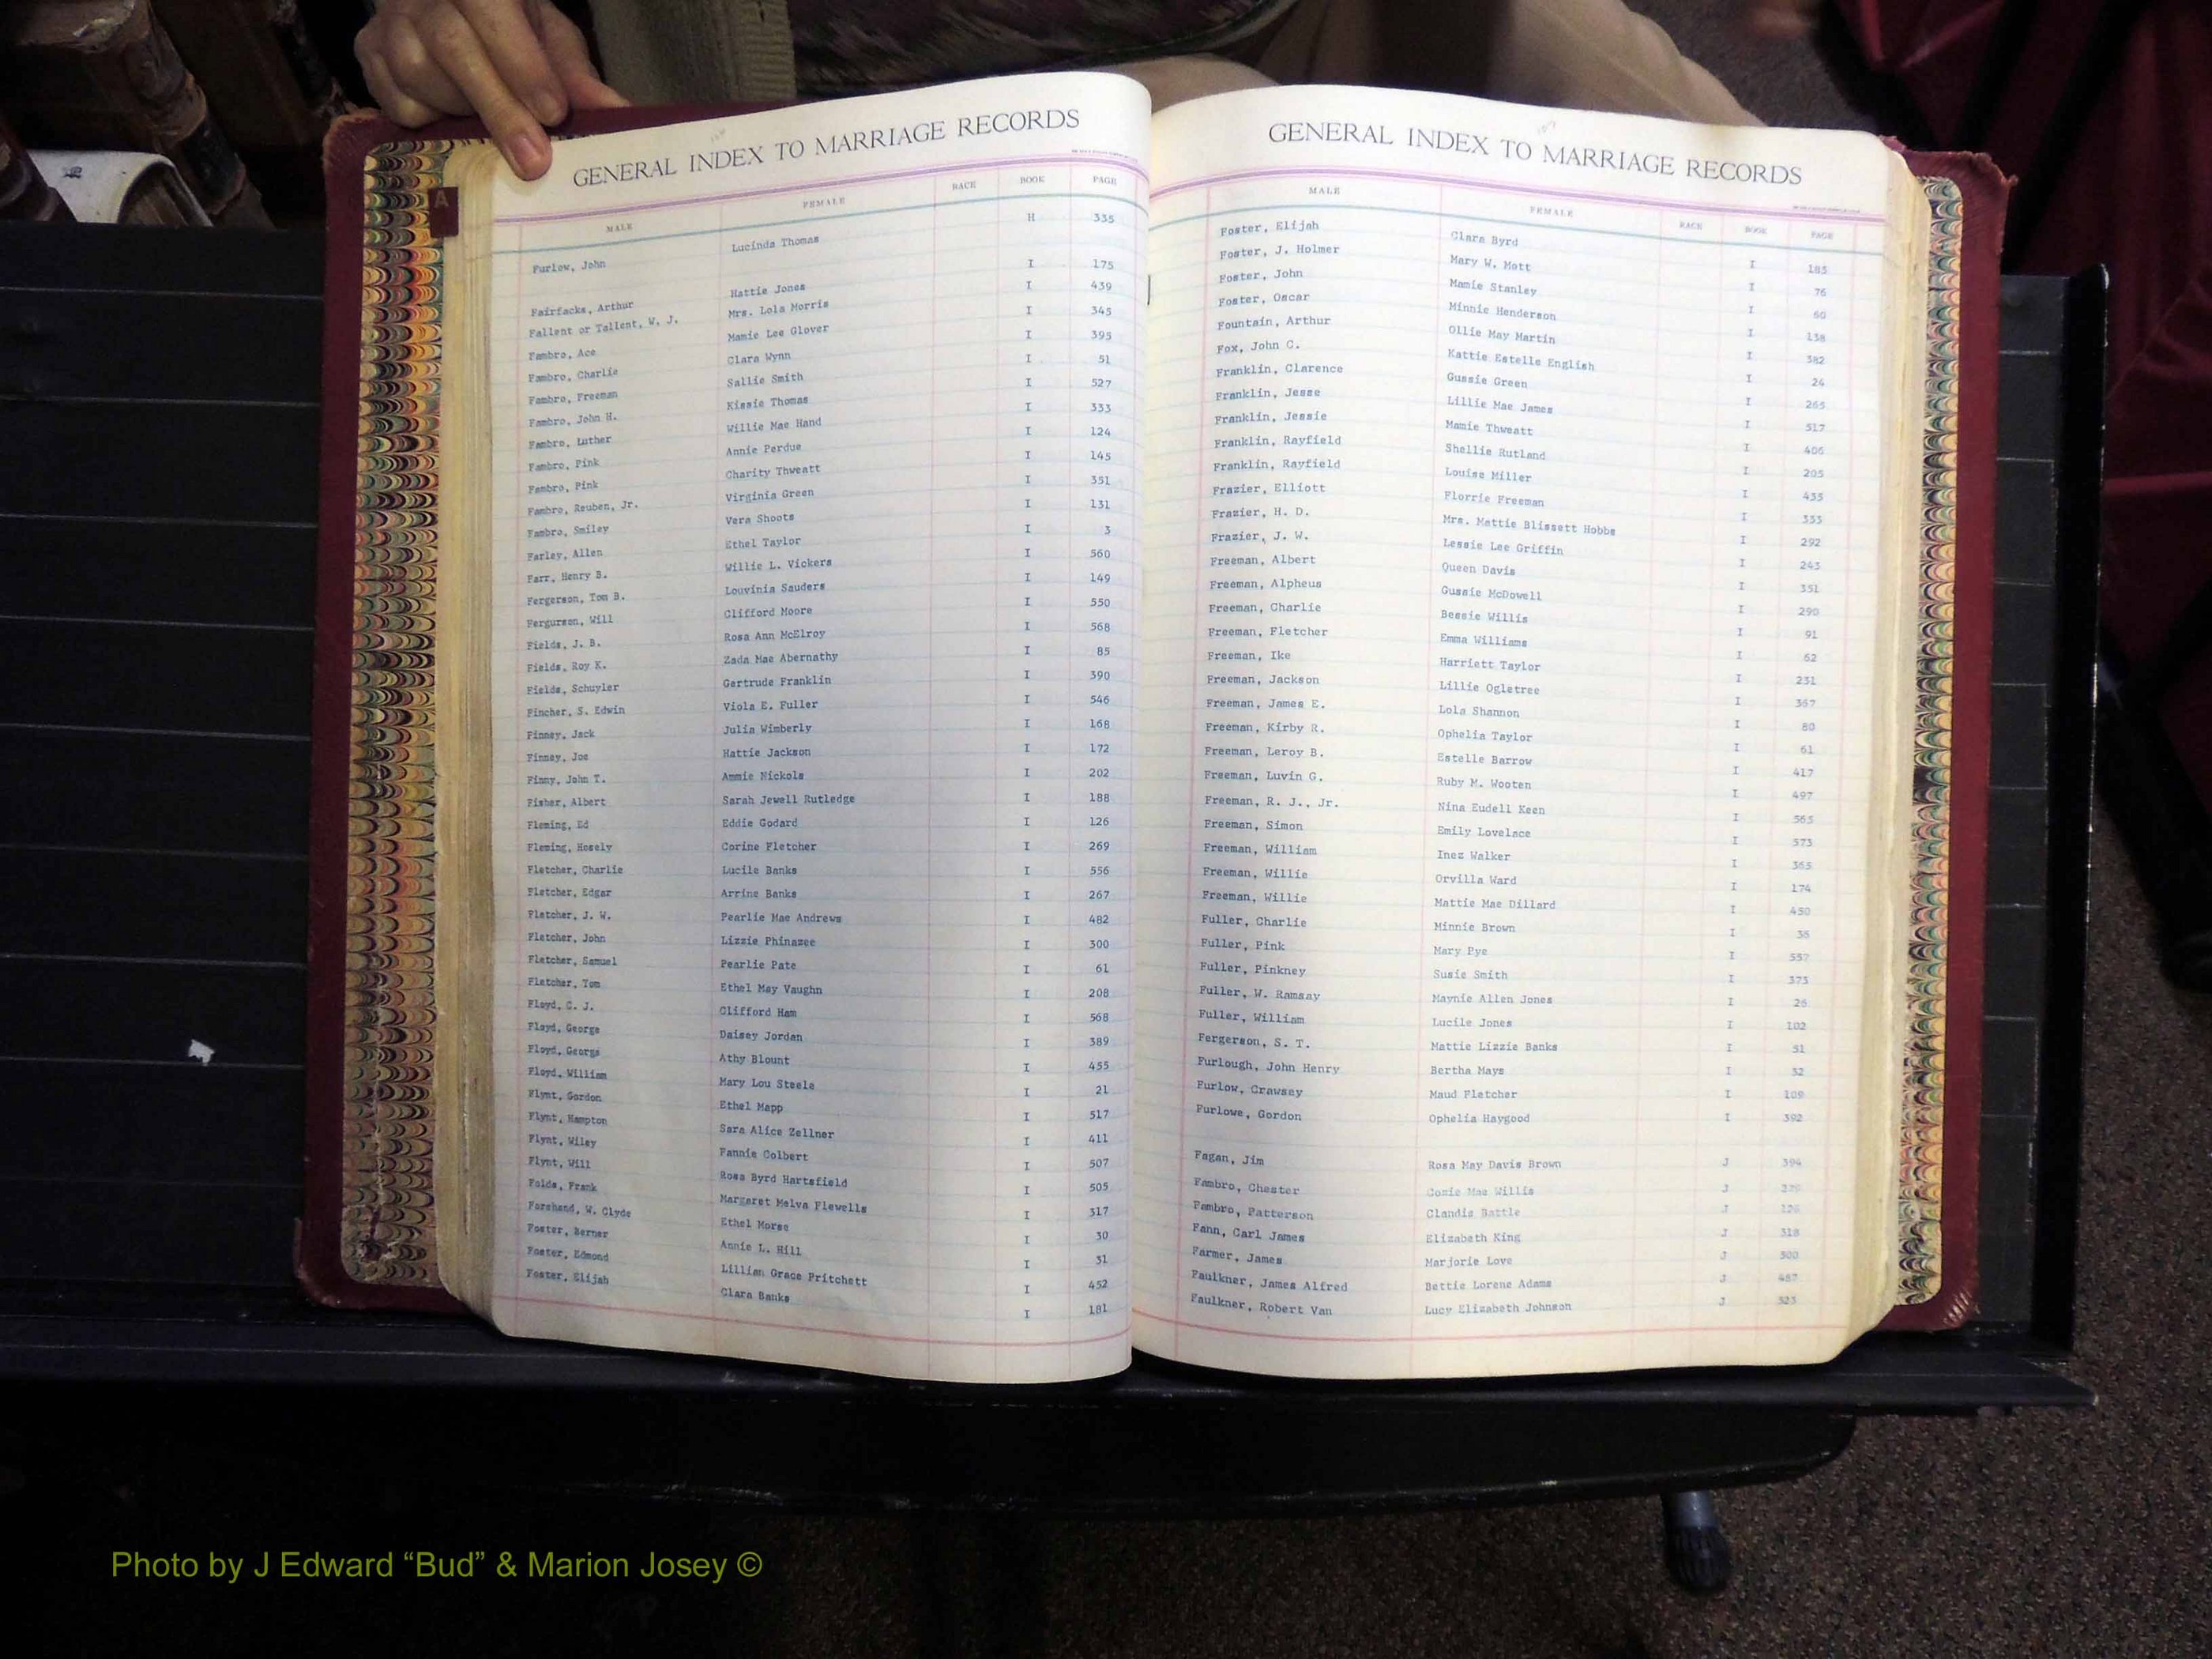 GENERAL INDEX TO MARRIAGE RECORDS
MALE FEMALE RACE BOOK PAGE
Furlow, John Lucinda Thomas H 335
Fairfacks, Arthur Hattie Jones I 175
Fallent or Tallent, W. J. Mrs. Lola Morris I 439
Fambro, Ace Mamie Lee Glover I 345
Fambro, Charlie Clara Wynn I 395
Fambro, Freeman Sallie Smith I 51
Fambro, John H. Kissie Thomas I 527
Fambro, Luther Willie Mae Hand I 333
Fambro, Pink Annie Perdue I 124
Fambro, Pink Charity Thweatt I 145
Fambro, Reuben, Jr. Virginia Green I 351
Fambro, Smiley Vera Shoots I 131
Farley, Allen Ethel Taylor I 3
Farr, Henry B. Willie L. Vickers I 560
Fergerson, Tom B. Louvinia Sauders I 149
Fergurson, Will Clifford Moore I 550
Fields, J. B. Rosa Ann McElroy I 568
Fields, Roy K. Zada Mae Abernathy I 85
Fields, Schuyler Gertrude Franklin I 390
Fincher, S. Edwin Viola E. Fuller I 546
Finney, Jack Julia Wimberly I 168
Finney, Joe Hattie Jackson I 172
Finny, John T. Ammie Nickols I 202
Fisher, Albert Sarah Jewell Rutledge I 188
Fleming, Ed Eddie Godard I 126
Fleming, Hosely Corine Fletcher I 269
Fletcher, Charlie Lucile Banks I 556
Fletcher, Edgar Arrine Banks I 267
Fletcher, J. W. Pearlie Mae Andrews I 482
Fletcher, John Lizzie Phinazee I 300
Fletcher, Samuel Pearlie Pate I 61
Fletcher, Tom Ethel May Vaughn I 208
Floyd, C. J. Clifford Ham I 568
Floyd, George Daisey Jordan I 389
Floyd, George Athy Blount I 455
Floyd, William Mary Lou Steele I 21
Flynt, Gordon Ethel Mapp I 517
Flynt, Hampton Sara Alice Zellner I 411
Flynt, Wiley Fannie Colbert I 507
Flynt, Will Rosa Byrd Hartsfield I 505
Folds, Frank Margaret Melva Flewells I 317
Forehand, W. Clyde Ethel Morse I 30
Foster, Berner Annie L. Hill I 31
Foster, Edmond Lillian Grace Pritchett I 452
Foster, Elijah Clara Banks I 181
GENERAL INDEX TO MARRIAGE RECORDS
MALE FEMALE RACE BOOK PAGE
Foster, Elijah Clara Byrd I 185
Foster, J. Holmer Mary W. Mott I 76
Foster, John Mamie Stanley I 60
Foster, Oscar Minnie Henderson I 138
Fountain, Arthur Ollie May Martin I 382
Fox, John C. Kattie Estelle English I 24
Franklin, Clarence Gussie Green I 265
Franklin, Jesse Lillie Mae James I 517
Franklin, Jessie Mamie Thweatt I 406
Franklin, Rayfield Shellie Rutland I 205
Franklin, Rayfield Louise Miller I 435
Frazier, Elliott Florrie Freeman I 333
Frazier, H. D. Mrs. Mattie Blissett Hobbs I 292
Frazier, J. W. Lessie Lee Griffin I 243
Freeman, Albert Queen Davis I 351
Freeman, Alpheus Gussie McDowell I 290
Freeman, Charlie Bessie Willis I 91
Freeman, Fletcher Emma Williams I 62
Freeman, Ike Harriett Taylor I 231
Freeman, Jackson Lillie Ogletree I 367
Freeman, James E. Lola Shannon I 80
Freeman, Kirby R. Ophelia Taylor I 61
Freeman, Leroy B. Estelle Barrow I 417
Freeman, Luvin G. Ruby M. Wooten I 497
Freeman, R. J., Jr. Nina Eudell Keen I 565
Freeman, Simon Emily Lovelace I 573
Freeman, William Inez Walker I 365
Freeman, Willie Orvilla Ward I 174
Freeman, Willie Mattie Mae Dillard I 450
Fuller, Charlie Minnie Brown I 36
Fuller, Pink Mary Pye I 557
Fuller, Pinkney Susie Smith I 373
Fuller, W. Ramsay Maynie Allen Jones I 26
Fuller, William Lucile Jones I 102
Fergerson, S. T. Mattie Lizzie Banks I 51
Furlough, John Henry Bertha Mays I 32
Furlow, Crawsey Maud Fletcher I 109
Furlowe, Gordon Ophelia Haygood I 392
Fagan, Jim Rosa May Davis Brown J 394
Fambro, Chester Conie Mae Willis J
Fambro, Patterson Claudia Battle J
Fann, Carl James Elizabeth King J 318
Farmer, James Marjorie Love J 300
Faulkner, James Alfred Bettie Lorene Adams J 487
Faulkner, Robert Van Lucy Elizabeth Johnson J 323
A
Photo by J Edward “Bud” & Marion Josey ©